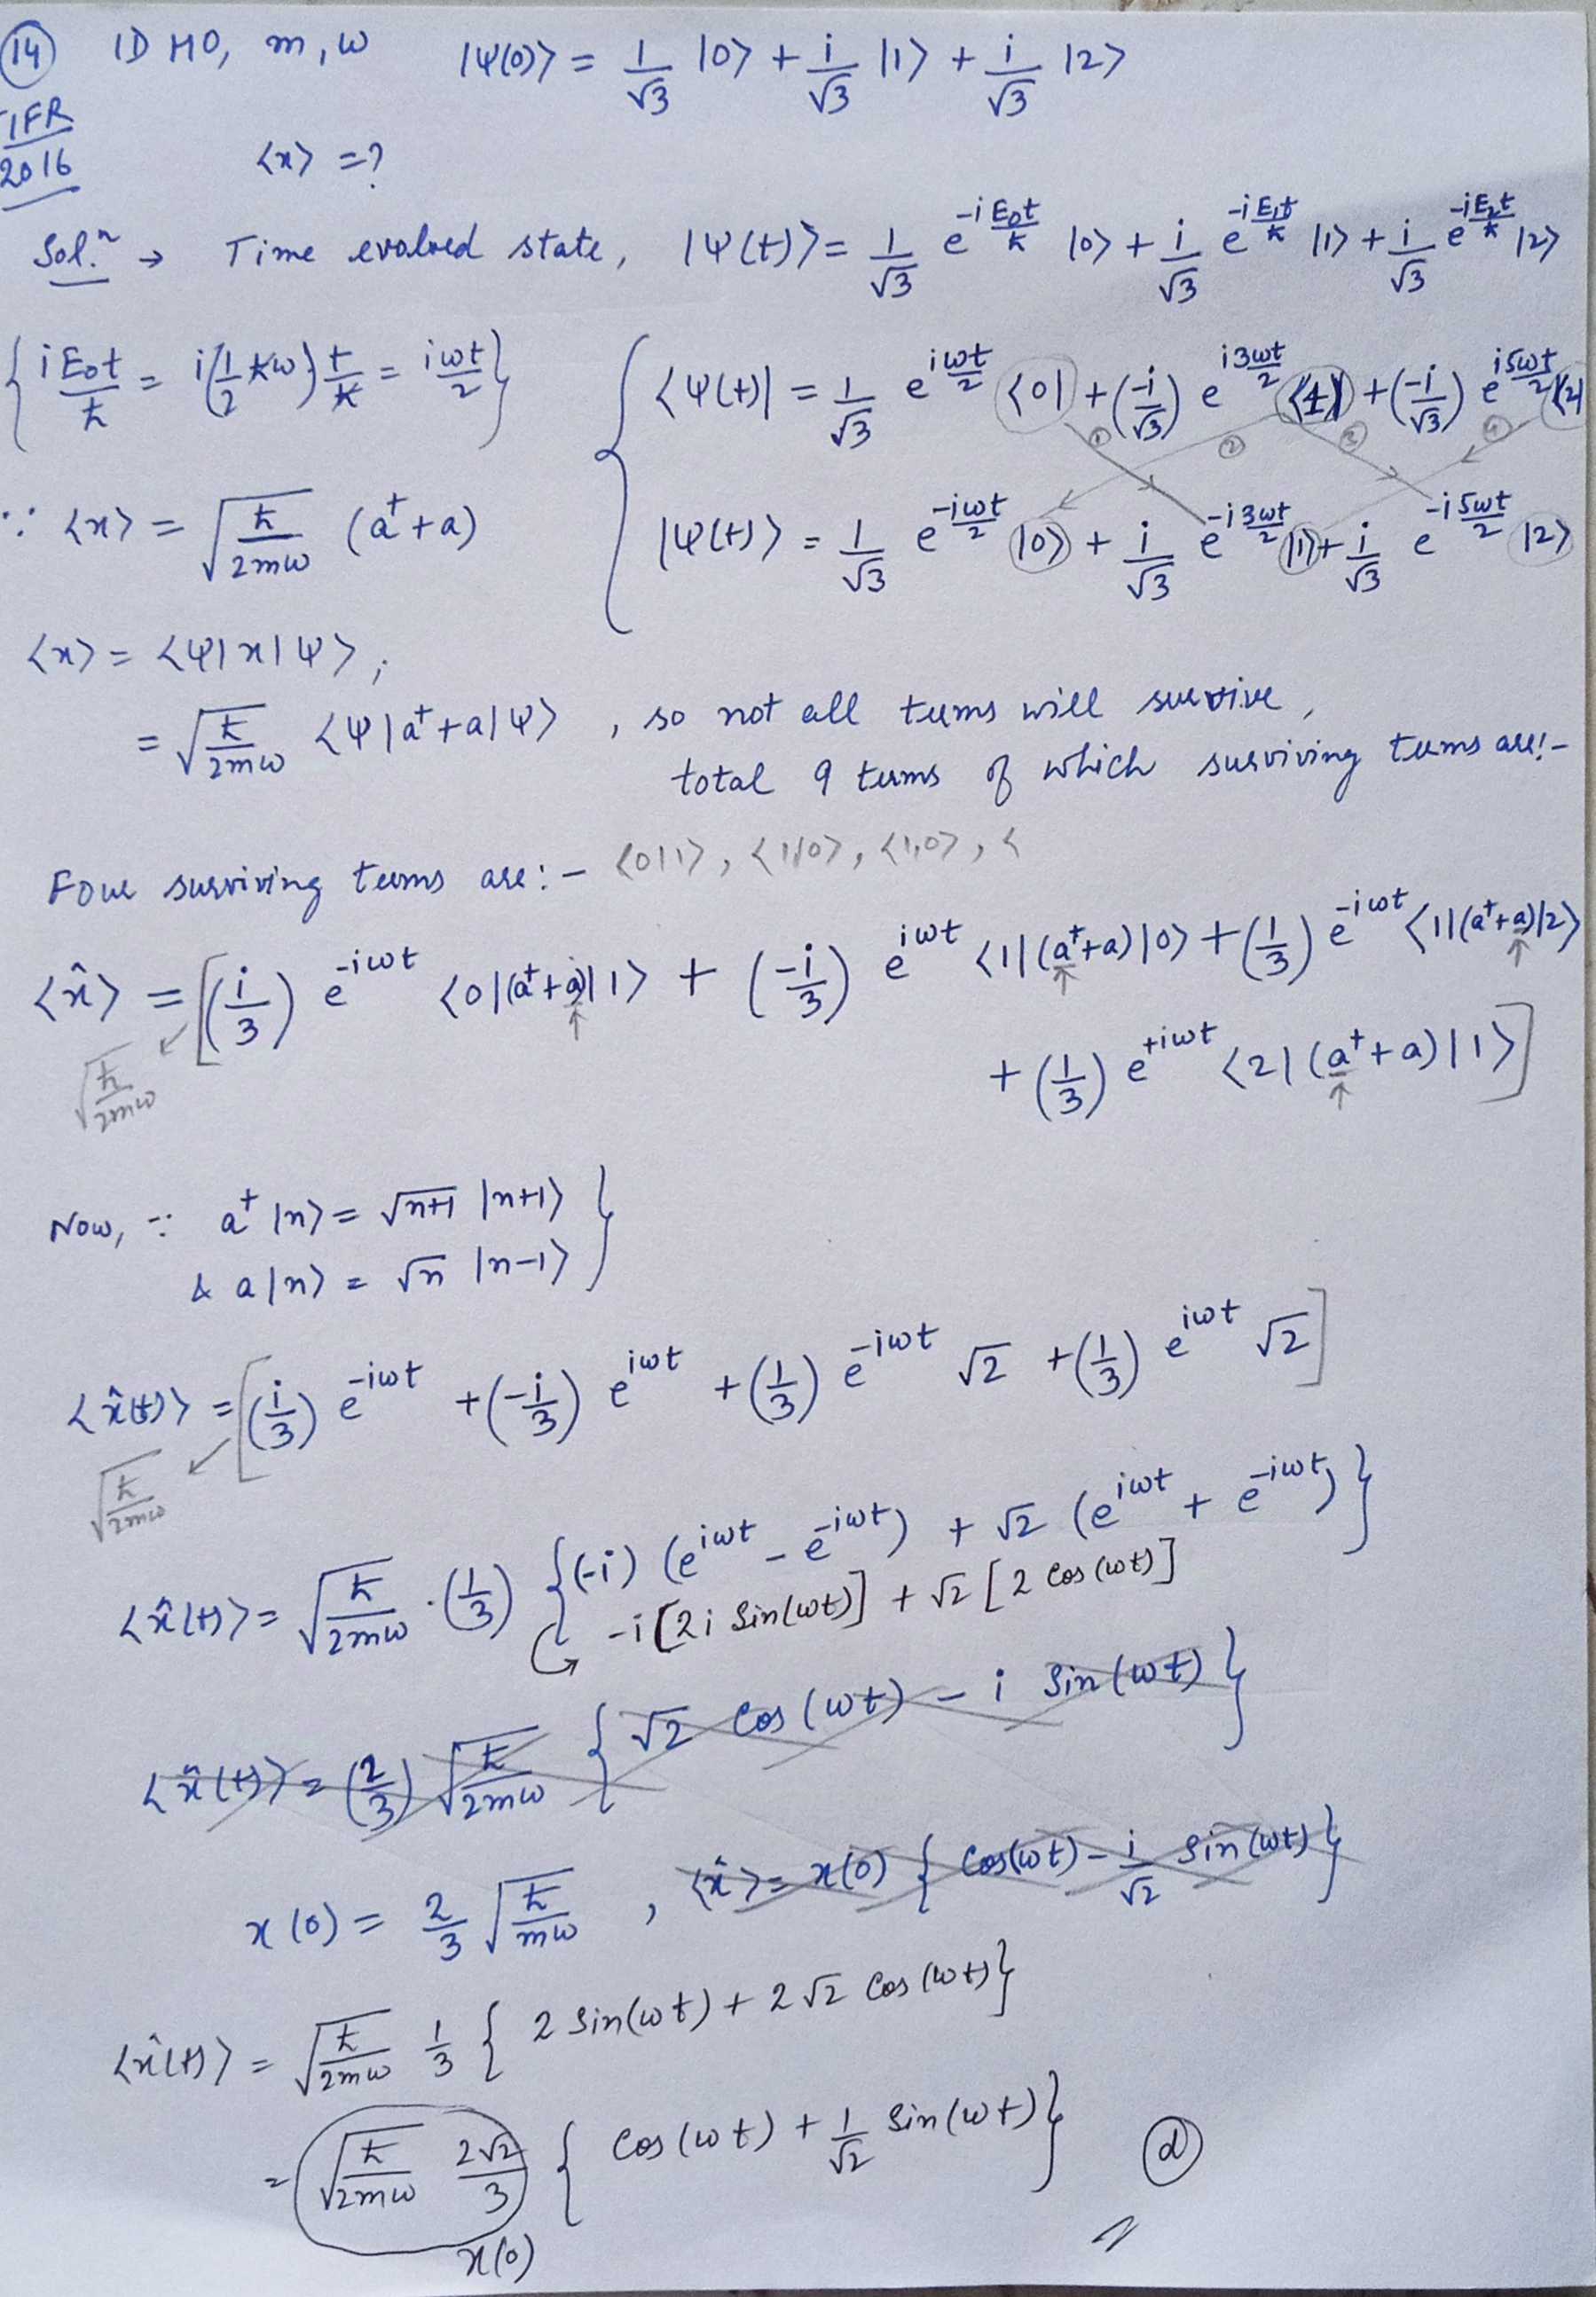 (14) 1D HO, m, ω |Ψ(0)⟩ = 1/√3 |0⟩ + i/√3 |1⟩ + i/√3 |2⟩
TIFR
2016
⟨x⟩ = ?
Solⁿ. → Time evolved state, |Ψ(t)⟩ = 1/√3 e^(-iE₀t/ħ) |0⟩ + i/√3 e^(-iE₁t/ħ) |1⟩ + i/√3 e^(-iE₂t/ħ) |2⟩
{ iE₀t/ħ = i(1/2 ħω) t/ħ = iωt/2 }
⟨Ψ(t)| = 1/√3 e^(iωt/2) ⟨0| + (-i/√3) e^(i3ωt/2) ⟨1| + (-i/√3) e^(i5ωt/2) ⟨2|
① ② ③ ④
∵ ⟨x⟩ = √(ħ/2mω) (a† + a)
|Ψ(t)⟩ = 1/√3 e^(-iωt/2) |0⟩ + i/√3 e^(-i3ωt/2) |1⟩ + i/√3 e^(-i5ωt/2) |2⟩
⟨x⟩ = ⟨Ψ|x|Ψ⟩ ;
= √(ħ/2mω) ⟨Ψ|a† + a|Ψ⟩ , so not all terms will survive,
total 9 terms of which surviving terms are:-
Four surviving terms are:- ⟨0|1⟩, ⟨1|0⟩, ⟨1,0⟩, ⟨
⟨x̂⟩ = [(i/3) e^(-iωt) ⟨0|(a†+a)|1⟩ + (-i/3) e^(iωt) ⟨1|(a†+a)|0⟩ + (1/3) e^(-iωt) ⟨1|(a†+a)|2⟩
√(ħ/2mω)
+ (1/3) e^(+iωt) ⟨2|(a†+a)|1⟩]
Now, ∵ a†|n⟩ = √n+1 |n+1⟩ }
& a|n⟩ = √n |n-1⟩
⟨x̂(t)⟩ = [(i/3) e^(-iωt) + (-i/3) e^(iωt) + (1/3) e^(-iωt) √2 + (1/3) e^(iωt) √2]
√(ħ/2mω)
⟨x̂(t)⟩ = √(ħ/2mω) · (1/3) {(-i) (e^(iωt) - e^(-iωt)) + √2 (e^(iωt) + e^(-iωt))}
-i[2i Sin(ωt)] + √2 [2 Cos(ωt)]
⟨x̂(t)⟩ = (2/3) √(ħ/2mω) {√2 Cos(ωt) - i Sin(ωt)}
x(0) = 2/3 √(ħ/mω) , ⟨x̂⟩ = x(0) { Cos(ωt) - i/√2 Sin(ωt)}
⟨x̂(t)⟩ = √(ħ/2mω) 1/3 { 2 Sin(ωt) + 2√2 Cos(ωt)}
= √(ħ/2mω) 2√2/3 { Cos(ωt) + 1/√2 Sin(ωt)} (d)
x(0)